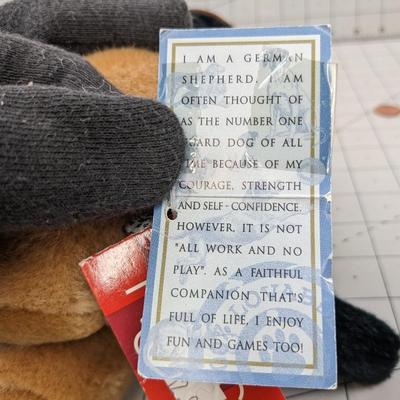 I AM A GERMAN
SHEPHERD. I AM
OFTEN THOUGHT OF
AS THE NUMBER ONE
GUARD DOG OF ALL
TIME BECAUSE OF MY
COURAGE, STRENGTH
AND SELF - CONFIDENCE.
HOWEVER, IT IS NOT
"ALL WORK AND NO
PLAY". AS A FAITHFUL
COMPANION THAT'S
FULL OF LIFE, I ENJOY
FUN AND GAMES TOO!